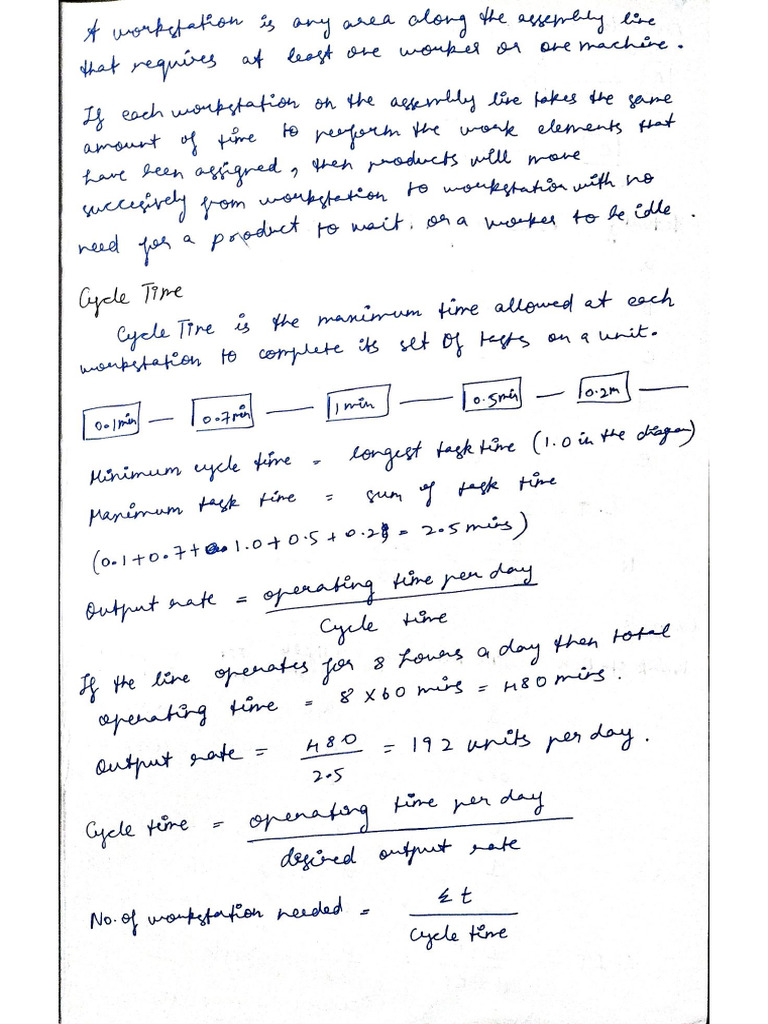 A workstation is any area along the assembly line
that requires at least one worker or one machine.
If each workstation on the assembly line takes the same
amount of time to perform the work elements that
have been assigned, then products will move
succesively from workstation to workstation with no
need for a product to wait. or a worker to be idle.
Cycle Time
Cycle Time is the maximum time allowed at each
workstation to complete its set of tasks on a unit.
0.1min — 0.7min — 1min — 0.5min — 0.2m —
Minimum cycle time = longest task time (1.0 in the diagram)
Maximum task time = sum of task time
(0.1+0.7+1.0+0.5+0.2 = 2.5 mins)
Output rate = operating time per day
Cycle time
If the line operates for 8 hours a day then total
operating time = 8 X 60 mins = 480 mins.
Output rate = 480 = 192 units per day.
2.5
Cycle time = operating time per day
desired output rate
No. of workstation needed = Σt
cycle time